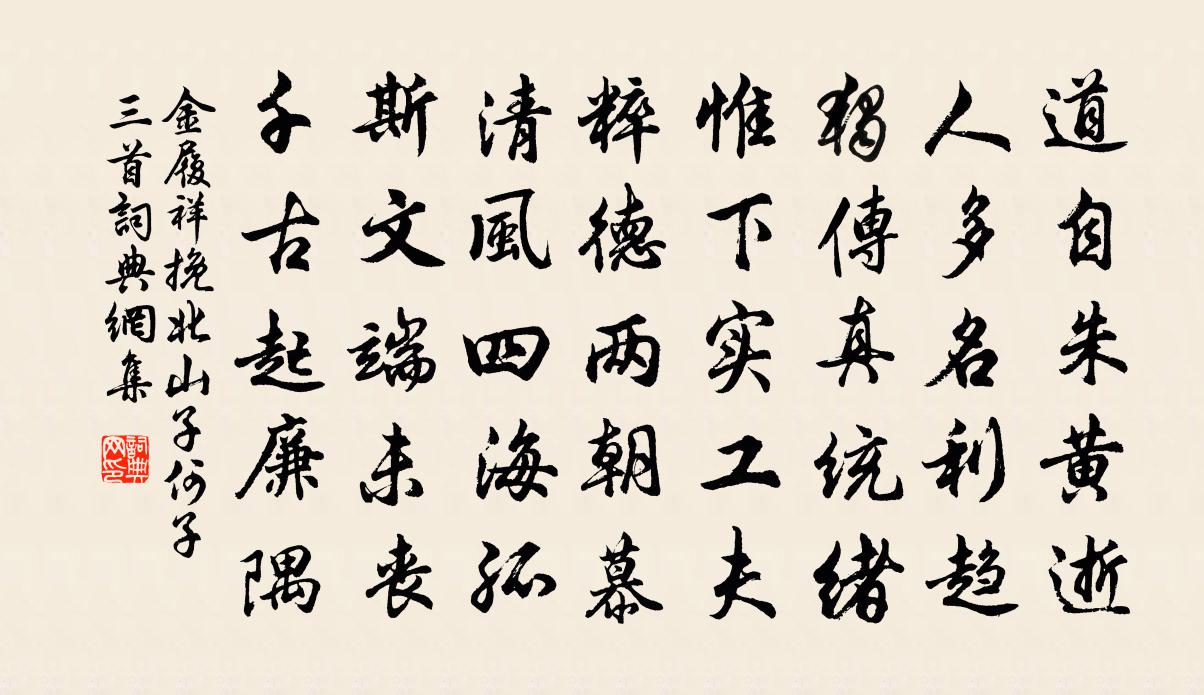 道自朱黄逝
人多名利趋
獨傳真统绪
惟下实工夫
粹德两朝慕
清風四海孤
斯文端未丧
千古起廉隅
金履祥挽北山子何子
三首詞典網集
詞典网印